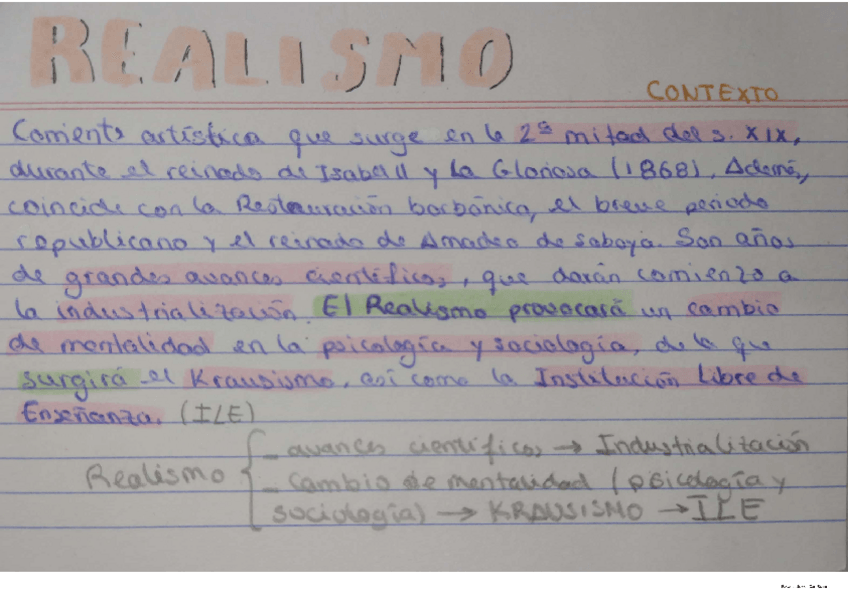 REALISMO
CONTEXTO
Corriente artística que surge en la 2ª mitad del s. XIX,
durante el reinado de Isabel II y La Gloriosa (1868). Además,
coincide con la Restauración borbónica, el breve periodo
republicano y el reinado de Amadeo de Saboya. Son años
de grandes avances científicos, que darán comienzo a
la industrialización. El Realismo provocará un cambio
de mentalidad en la psicología y sociología, de la que
surgirá el Krausismo, así como la Institución Libre de
Enseñanza. (ILE)
- avances científicos → Industrialización
Realismo
- Cambio de mentalidad (psicología y
sociología) → KRAUSISMO → ILE